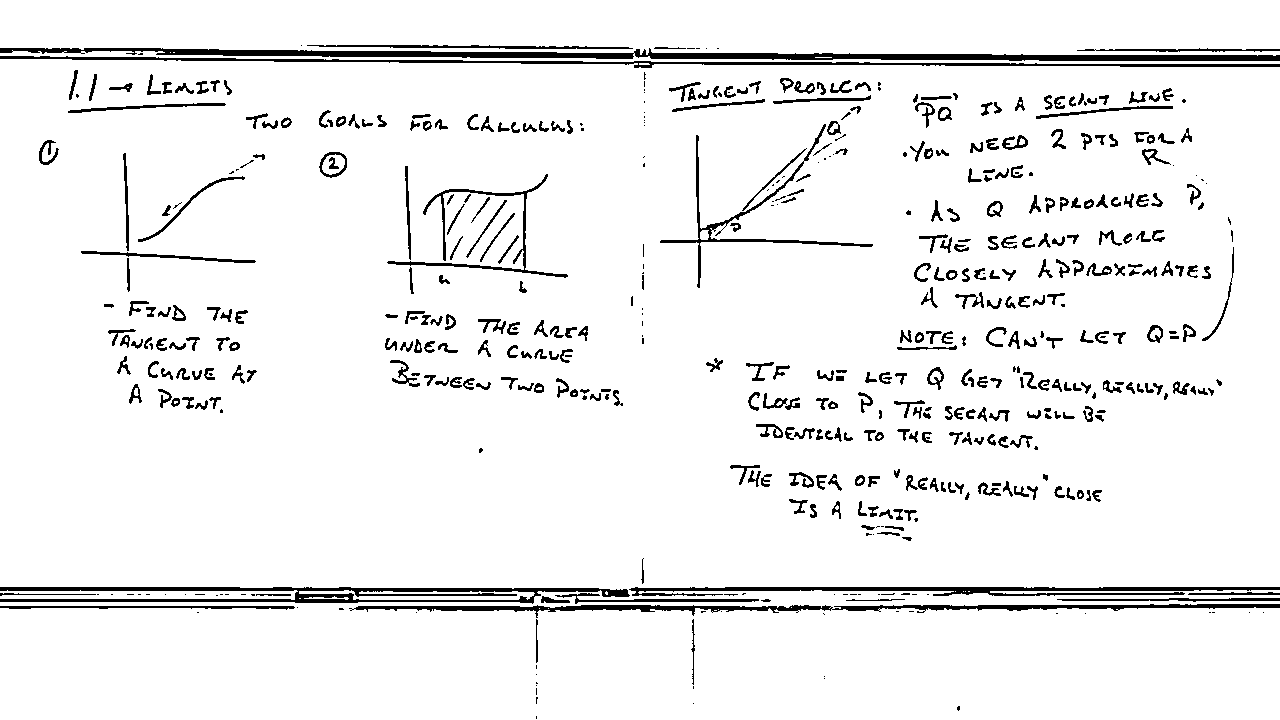 1.1 → LIMITS
TWO GOALS FOR CALCULUS:
①
②
a b
- FIND THE
TANGENT TO
A CURVE AT
A POINT.
- FIND THE AREA
UNDER A CURVE
BETWEEN TWO POINTS.
TANGENT PROBLEM:
Q
P
"PQ" IS A SECANT LINE.
• YOU NEED 2 PTS FOR A
LINE.
• AS Q APPROACHES P,
THE SECANT MORE
CLOSELY APPROXIMATES
A TANGENT.
NOTE: CAN'T LET Q=P
* IF WE LET Q GET "REALLY, REALLY, REALLY"
CLOSE TO P, THE SECANT WILL BE
IDENTICAL TO THE TANGENT.
THE IDEA OF "REALLY, REALLY" CLOSE
IS A LIMIT.